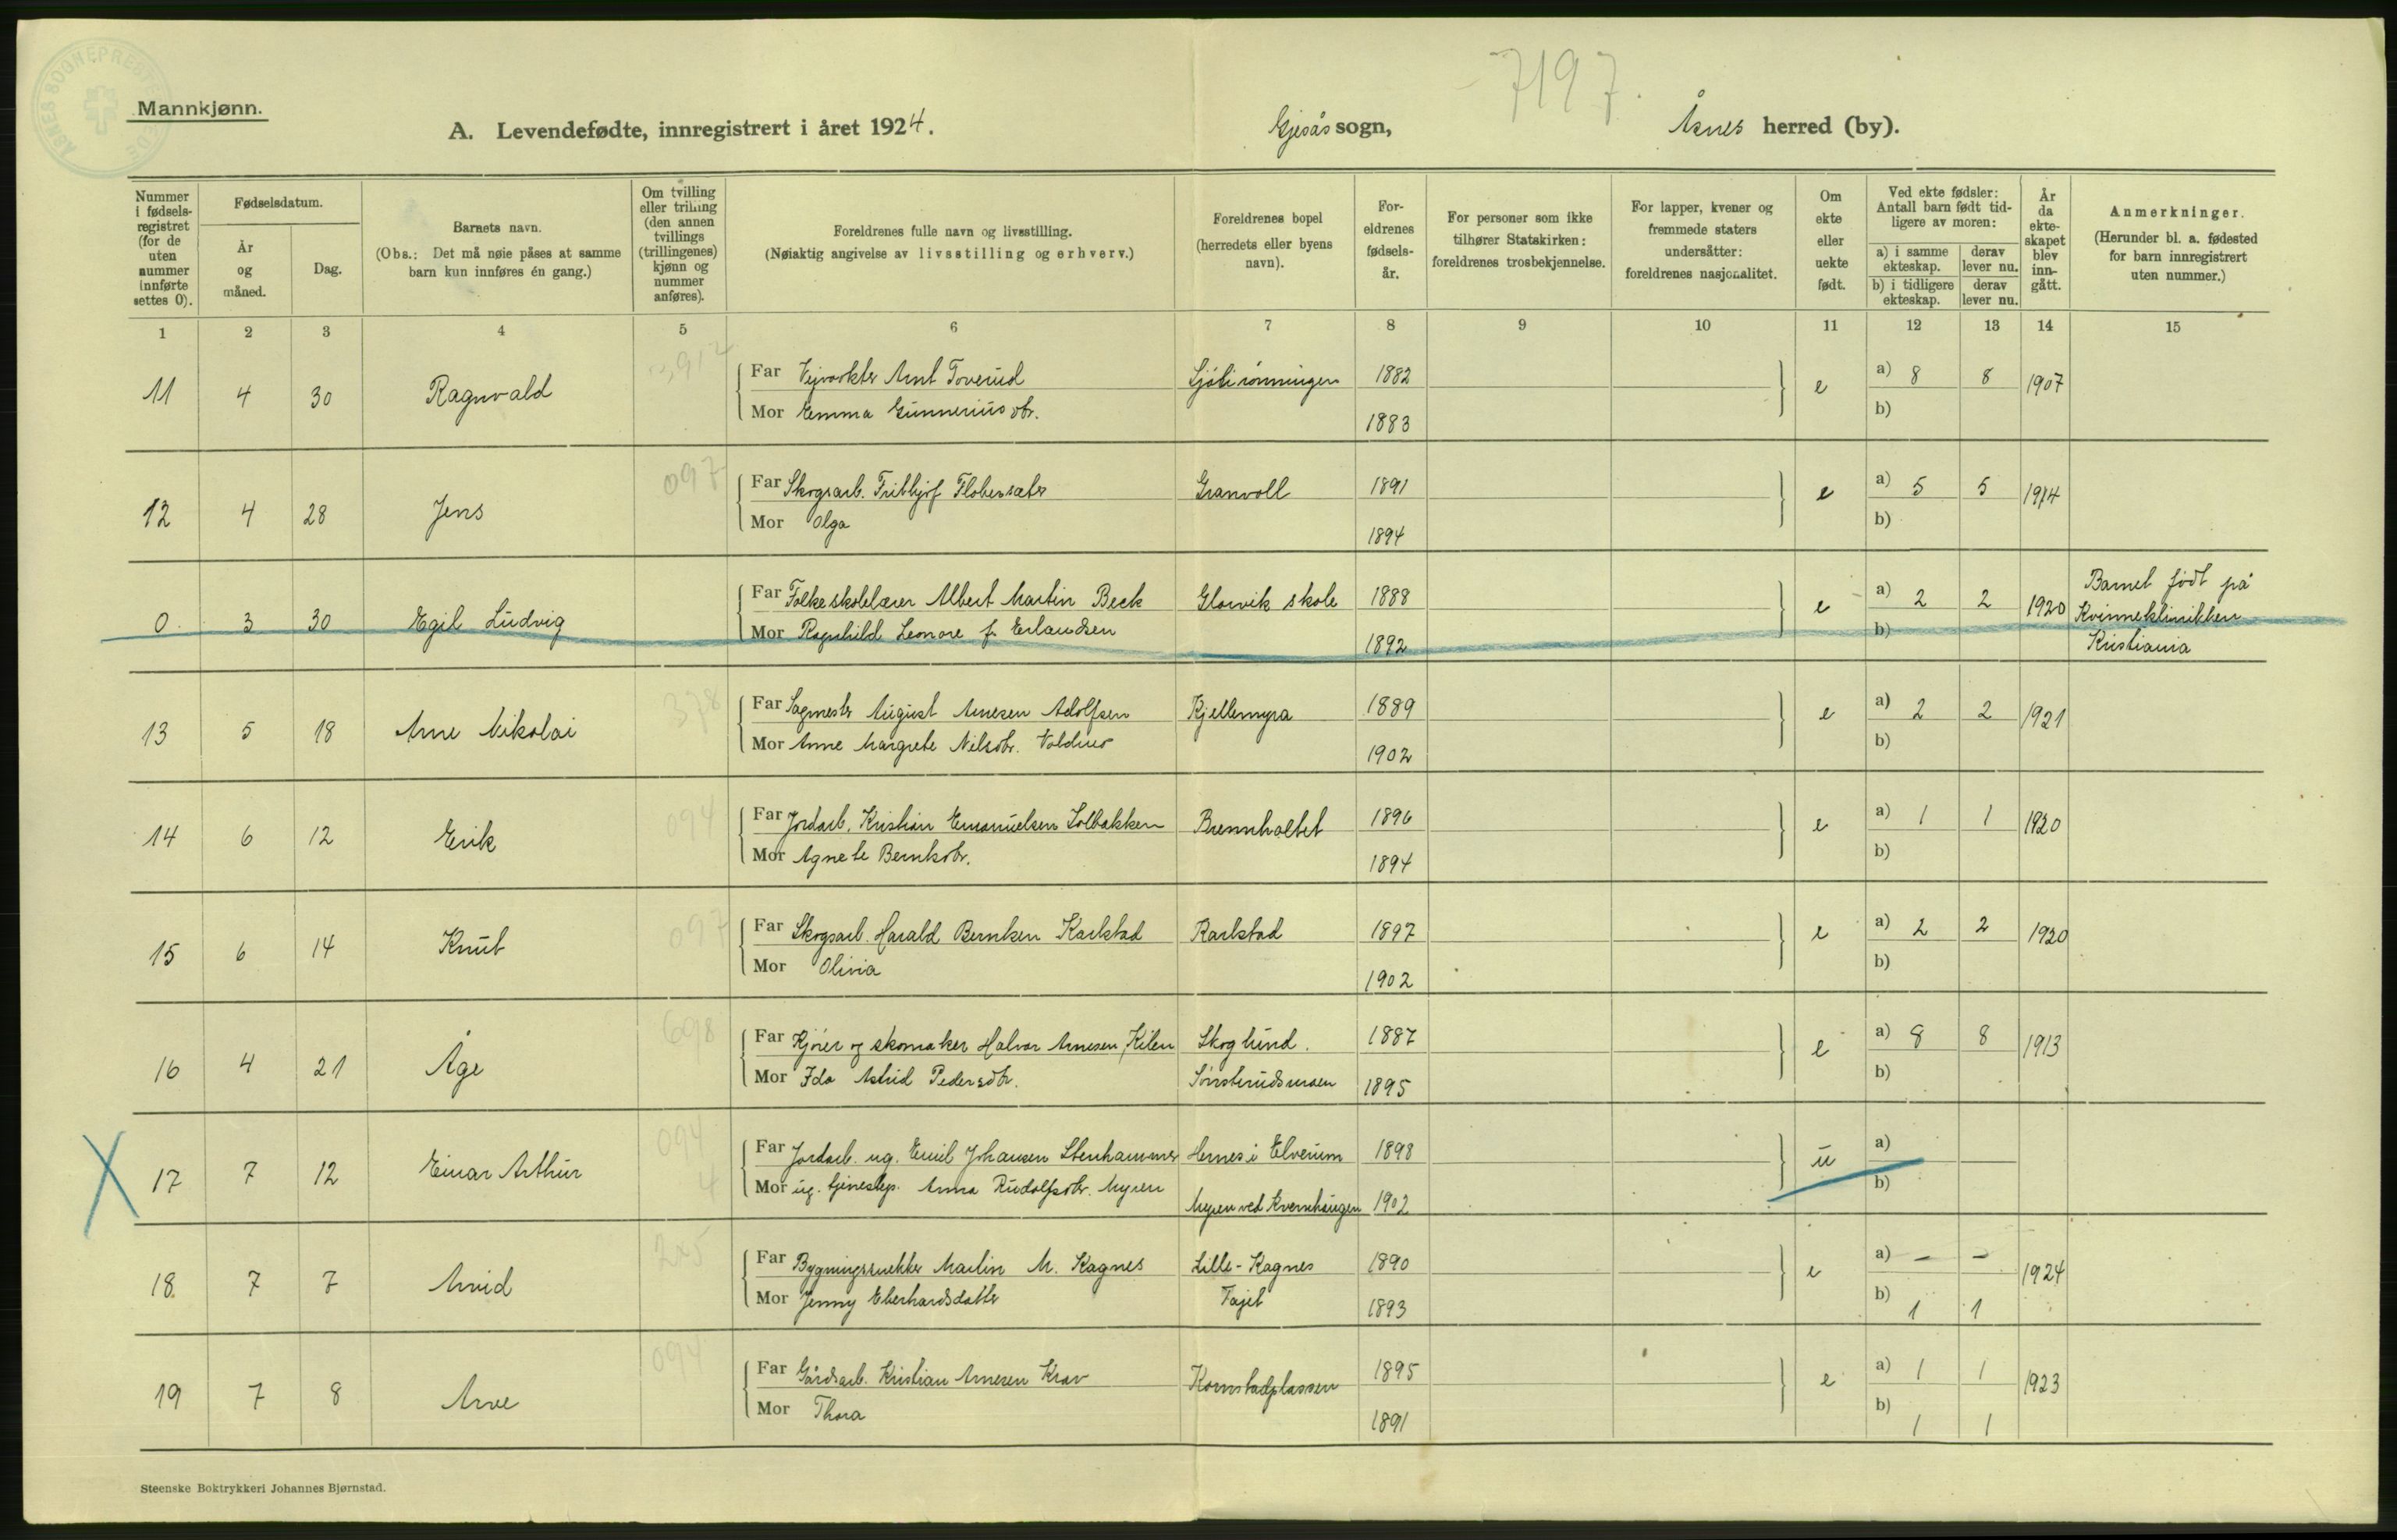 7197.
Mannkjønn.
A. Levendefødte, innregistrert i året 1924.
Gjesås sogn,
Åsnes herred (by).
Nummer i fødsels-registret (for de uten nummer innførte settes 0).
Fødselsdatum.
År og måned.
Dag.
Barnets navn.
(Obs.: Det må nøie påses at samme barn kun innføres én gang.)
Om tvilling eller trilling (den annen tvillings (trillingenes) kjønn og nummer anføres).
Foreldrenes fulle navn og livsstilling.
(Nøiaktig angivelse av livsstilling og erhverv.)
Foreldrenes bopel (herredets eller byens navn).
For-eldrenes fødsels-år.
For personer som ikke tilhører Statskirken: foreldrenes trosbekjennelse.
For lapper, kvener og fremmede staters undersåtter: foreldrenes nasjonalitet.
Om ekte eller uekte født.
Ved ekte fødsler: Antall barn født tid-ligere av moren:
a) i samme ekteskap.
derav lever nu.
b) i tidligere ekteskap.
derav lever nu.
År da ekte-skapet blev inn-gått.
Anmerkninger.
(Herunder bl. a. fødested for barn innregistrert uten nummer.)
1 2 3 4 5 6 7 8 9 10 11 12 13 14 15
11 4 30 Ragnvald Far Vejvokter Arnt Toverud 1882 e a) 8 8 1907
Mor Emma Gunneriusdtr. 1883 b)
12 4 28 Jens 097 Far Skogsarb. Frithjof Flobersæter Granvoll 1891 e a) 5 5 1914
Mor Olga 1894 b)
0 3 30 Egil Ludvig Far Folkeskolelærer Albert Martin Beck Glorvik skole 1888 e a) 2 2 1920 Barnet født på Kvinneklinikken Kristiania
Mor Ragnhild Leonore f. Erlandsen 1892 b)
13 5 18 Arne Nikolai 378 Far Sagmester August Arnesen Adolfsen Kjellemyra 1889 e a) 2 2 1921
Mor Anne Margrete Nilsdtr. 1902 b)
14 6 12 Erik 094 Far Jordarb. Kristian Emanuelsen Solbakken Brennholtet 1896 e a) 1 1 1920
Mor Agnete Berntsdtr. 1894 b)
15 6 14 Knut 097 Far Skogsarb. Harald Berntsen Karlstad Karlstad 1897 e a) 2 2 1920
Mor Olivia 1902 b)
16 4 21 Åge 698 Far Kjører og skomaker Halvor Arnesen Kilen Skoglund. 1887 e a) 8 8 1913
Mor Ida Astrid Pedersdtr. Sønsterudsmoen 1895 b)
X 17 7 12 Einar Arthur 094 4 Far Jordarb. ug. Emil Johansen Stenhammer Hernes i Elverum 1898 u a)
Mor ug. tjenestep. Anna Rudolfsdtr. Myren Myren ved Kvernhaugen 1902 b)
18. 7 7 Arvid Far Bygningssnekker Martin M. Kagnes Lille-Kagnes 1890 e a) - - 1924
Mor Jenny Eberhardsdatter 1893 b) 1 1
19 7 8 Arve 094 Far Gårdsarb. Kristian Arnesen Krav Kornstadplassen 1895 e a) 1 1 1923
Mor Thora 1891 b) 1 1
Steenske Boktrykkeri Johannes Bjørnstad.